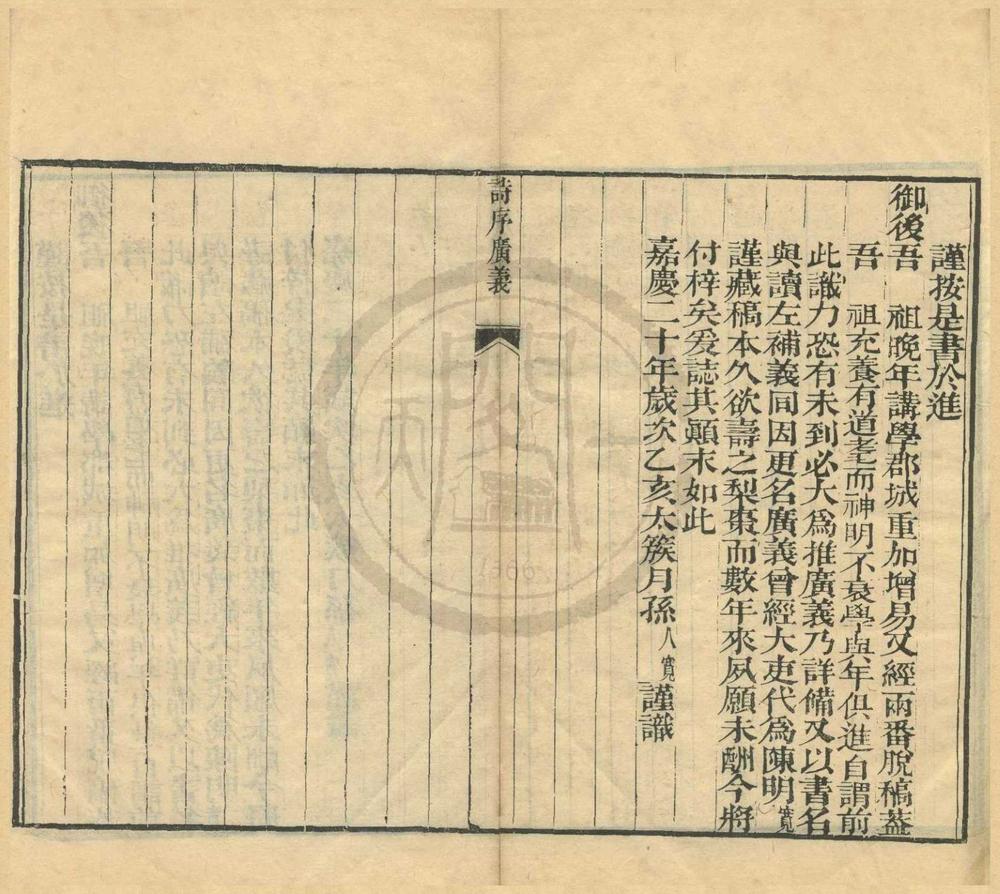 謹按是書於進
御後吾　祖晚年講學郡城重加增易又經兩番脫稿蓋
吾　祖充養有道耄而神明不衰學與年俱進自謂前
此識力恐有未到必大為推廣義乃詳備又以書名
與讀左補義同因更名廣義曾經大吏代為陳明寬
謹藏稿本久欲壽之梨棗而數年來夙願未酬今將
付梓矣爰誌其顛末如此
嘉慶二十年歲次乙亥太簇月孫人寬謹識
詩序廣義